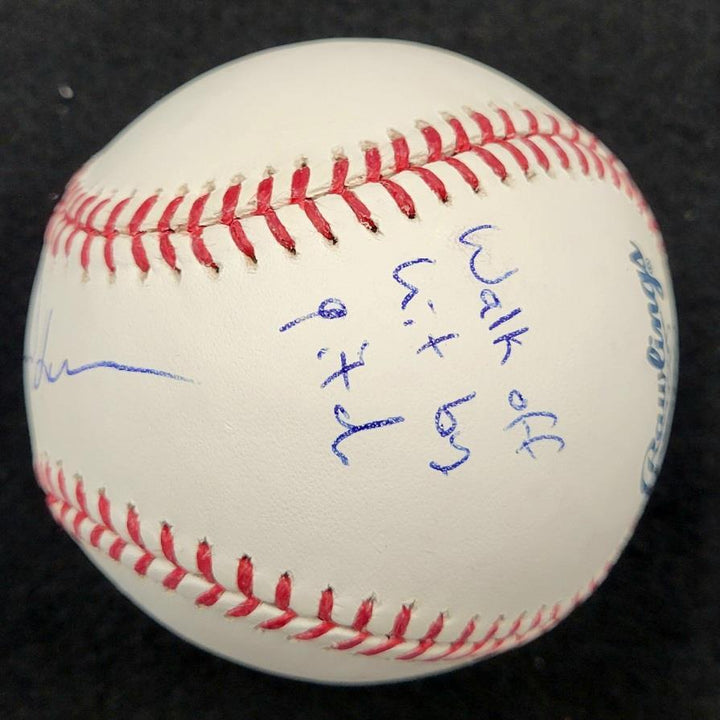 Rawlings
Walk off
hit by
pitch